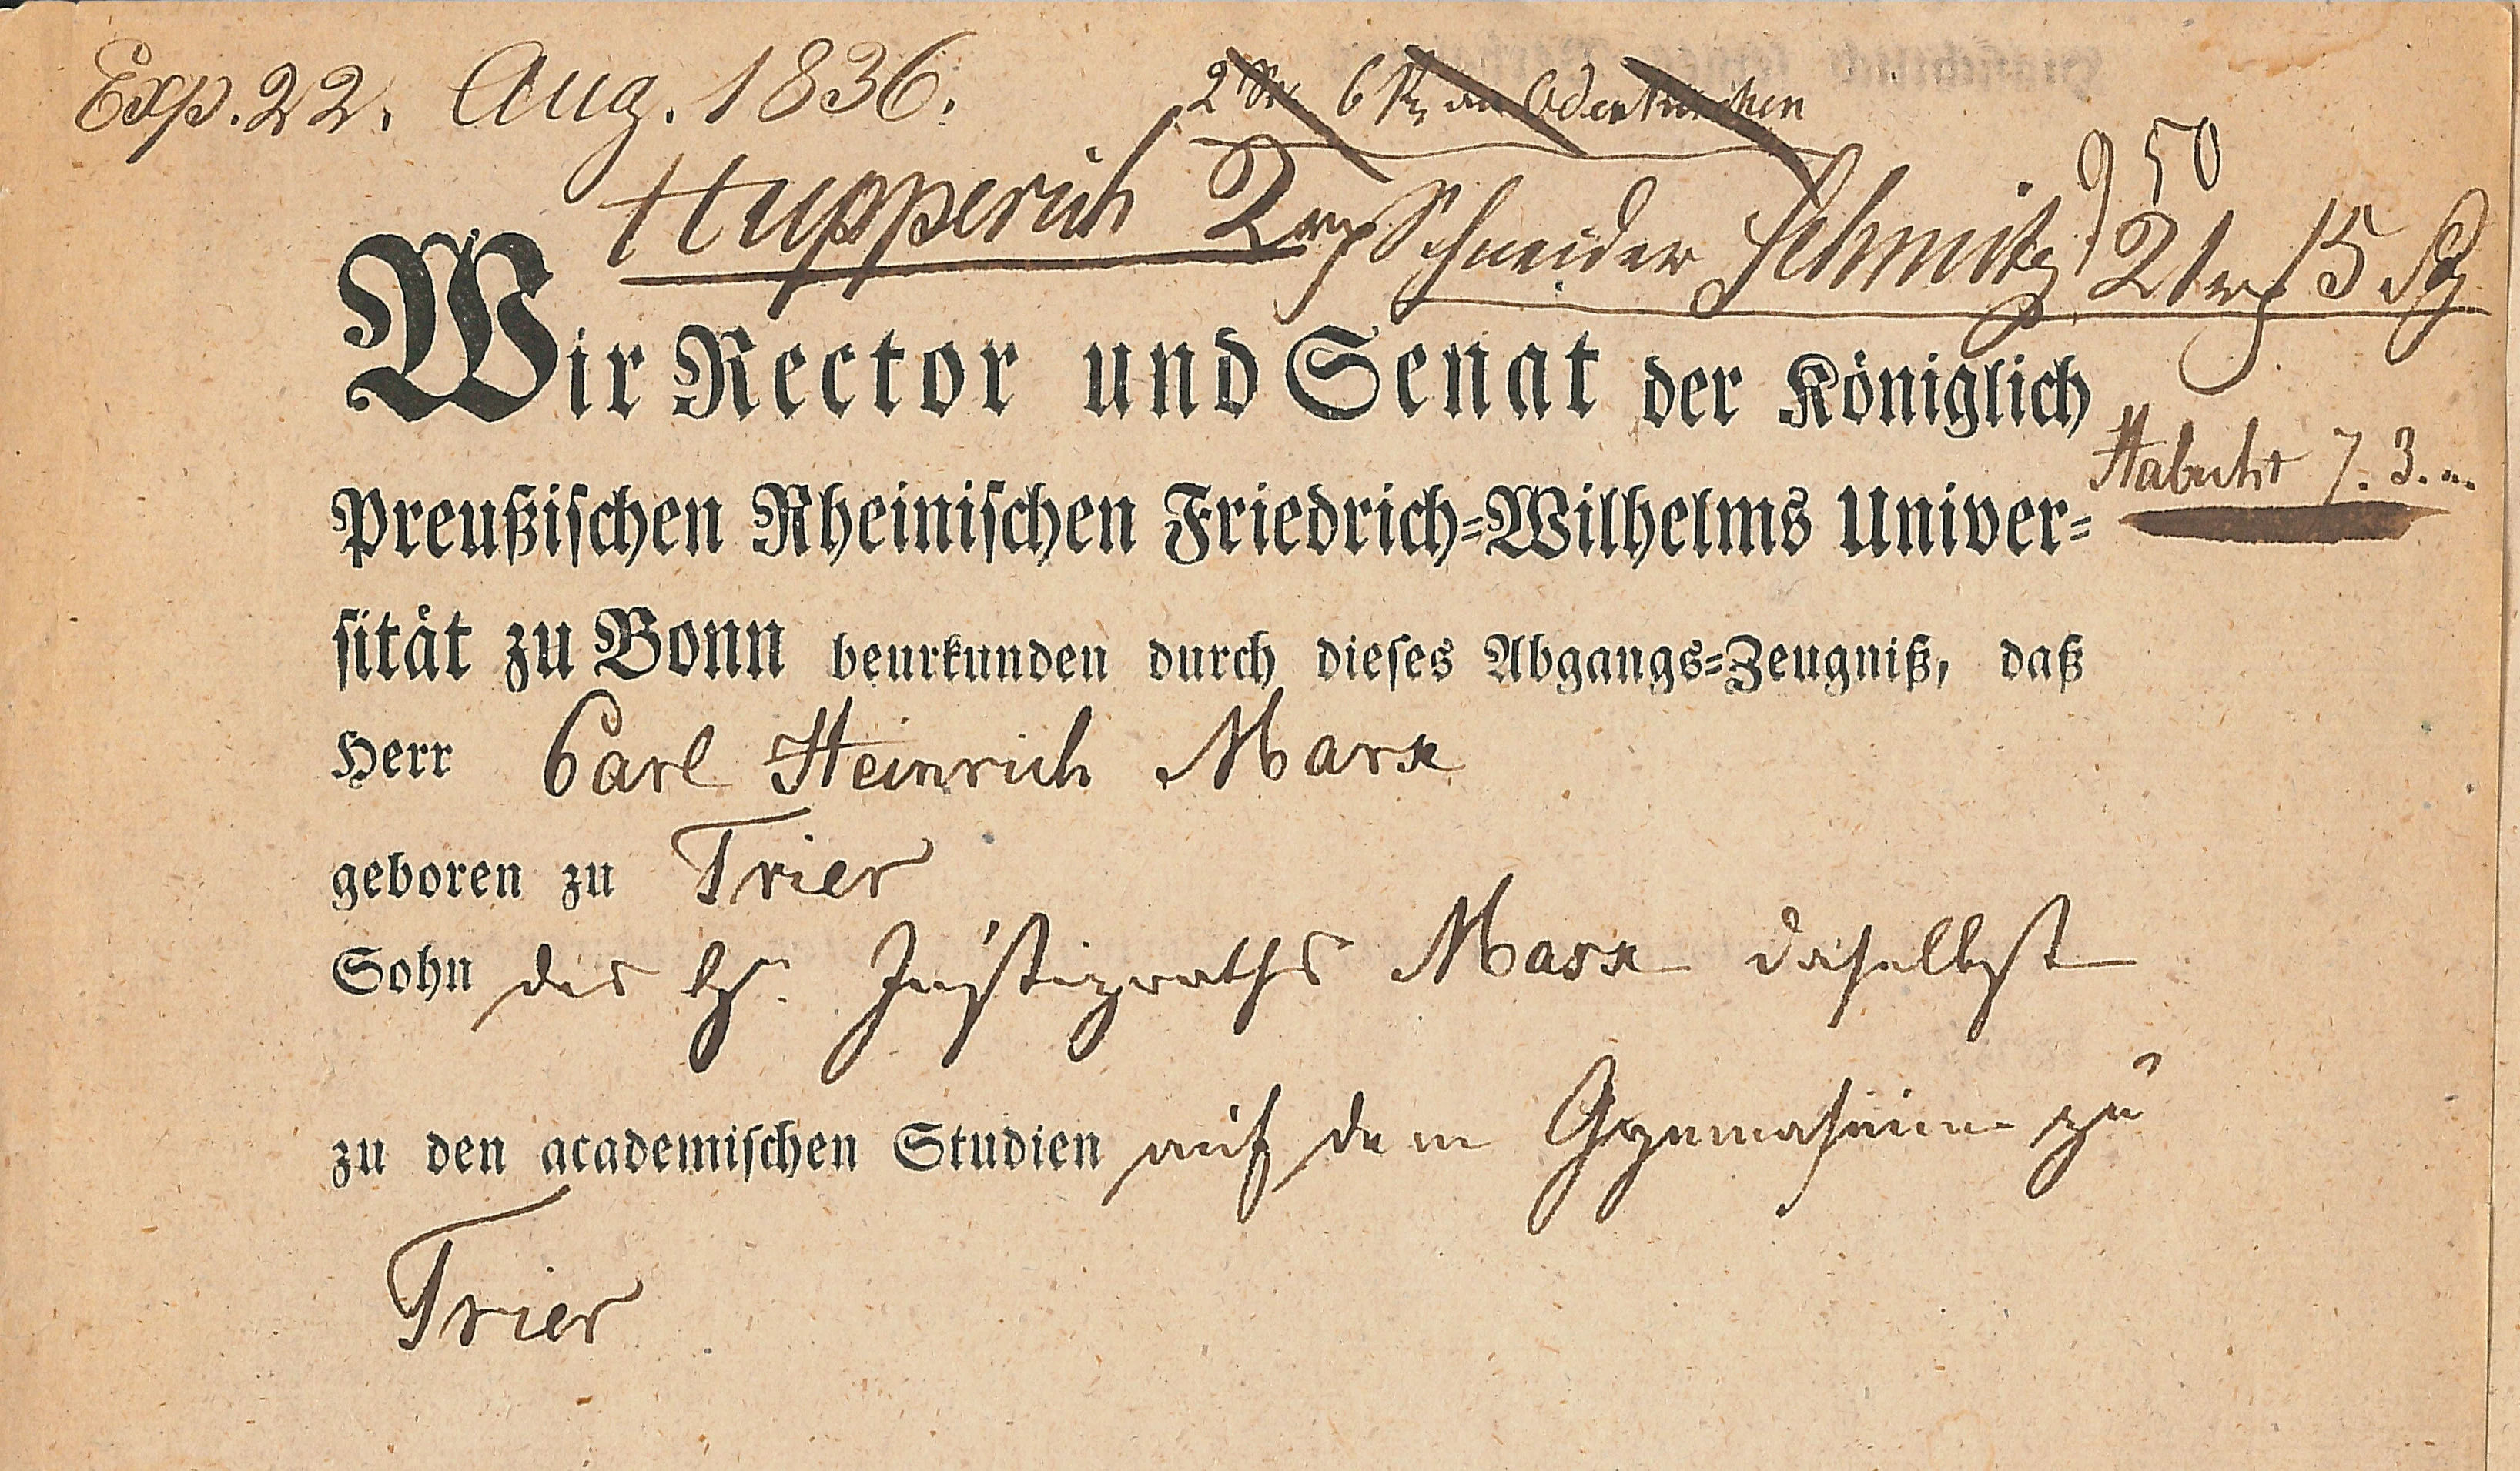 Exp. 22. Aug. 1836.
950
Hupperich Schneider Schmitz 15
Wir Rector und Senat der Königlich
Habicht 7. 3.
Preußischen Rheinischen Friedrich=Wilhelms Univer=
sität zu Bonn beurkunden durch dieses Abgangs=Zeugniß, daß
Herr Carl Heinrich Marx
geboren zu Trier
Sohn des H. Justizraths Marx daselbst
zu den academischen Studien auf dem Gymnasium zu
Trier